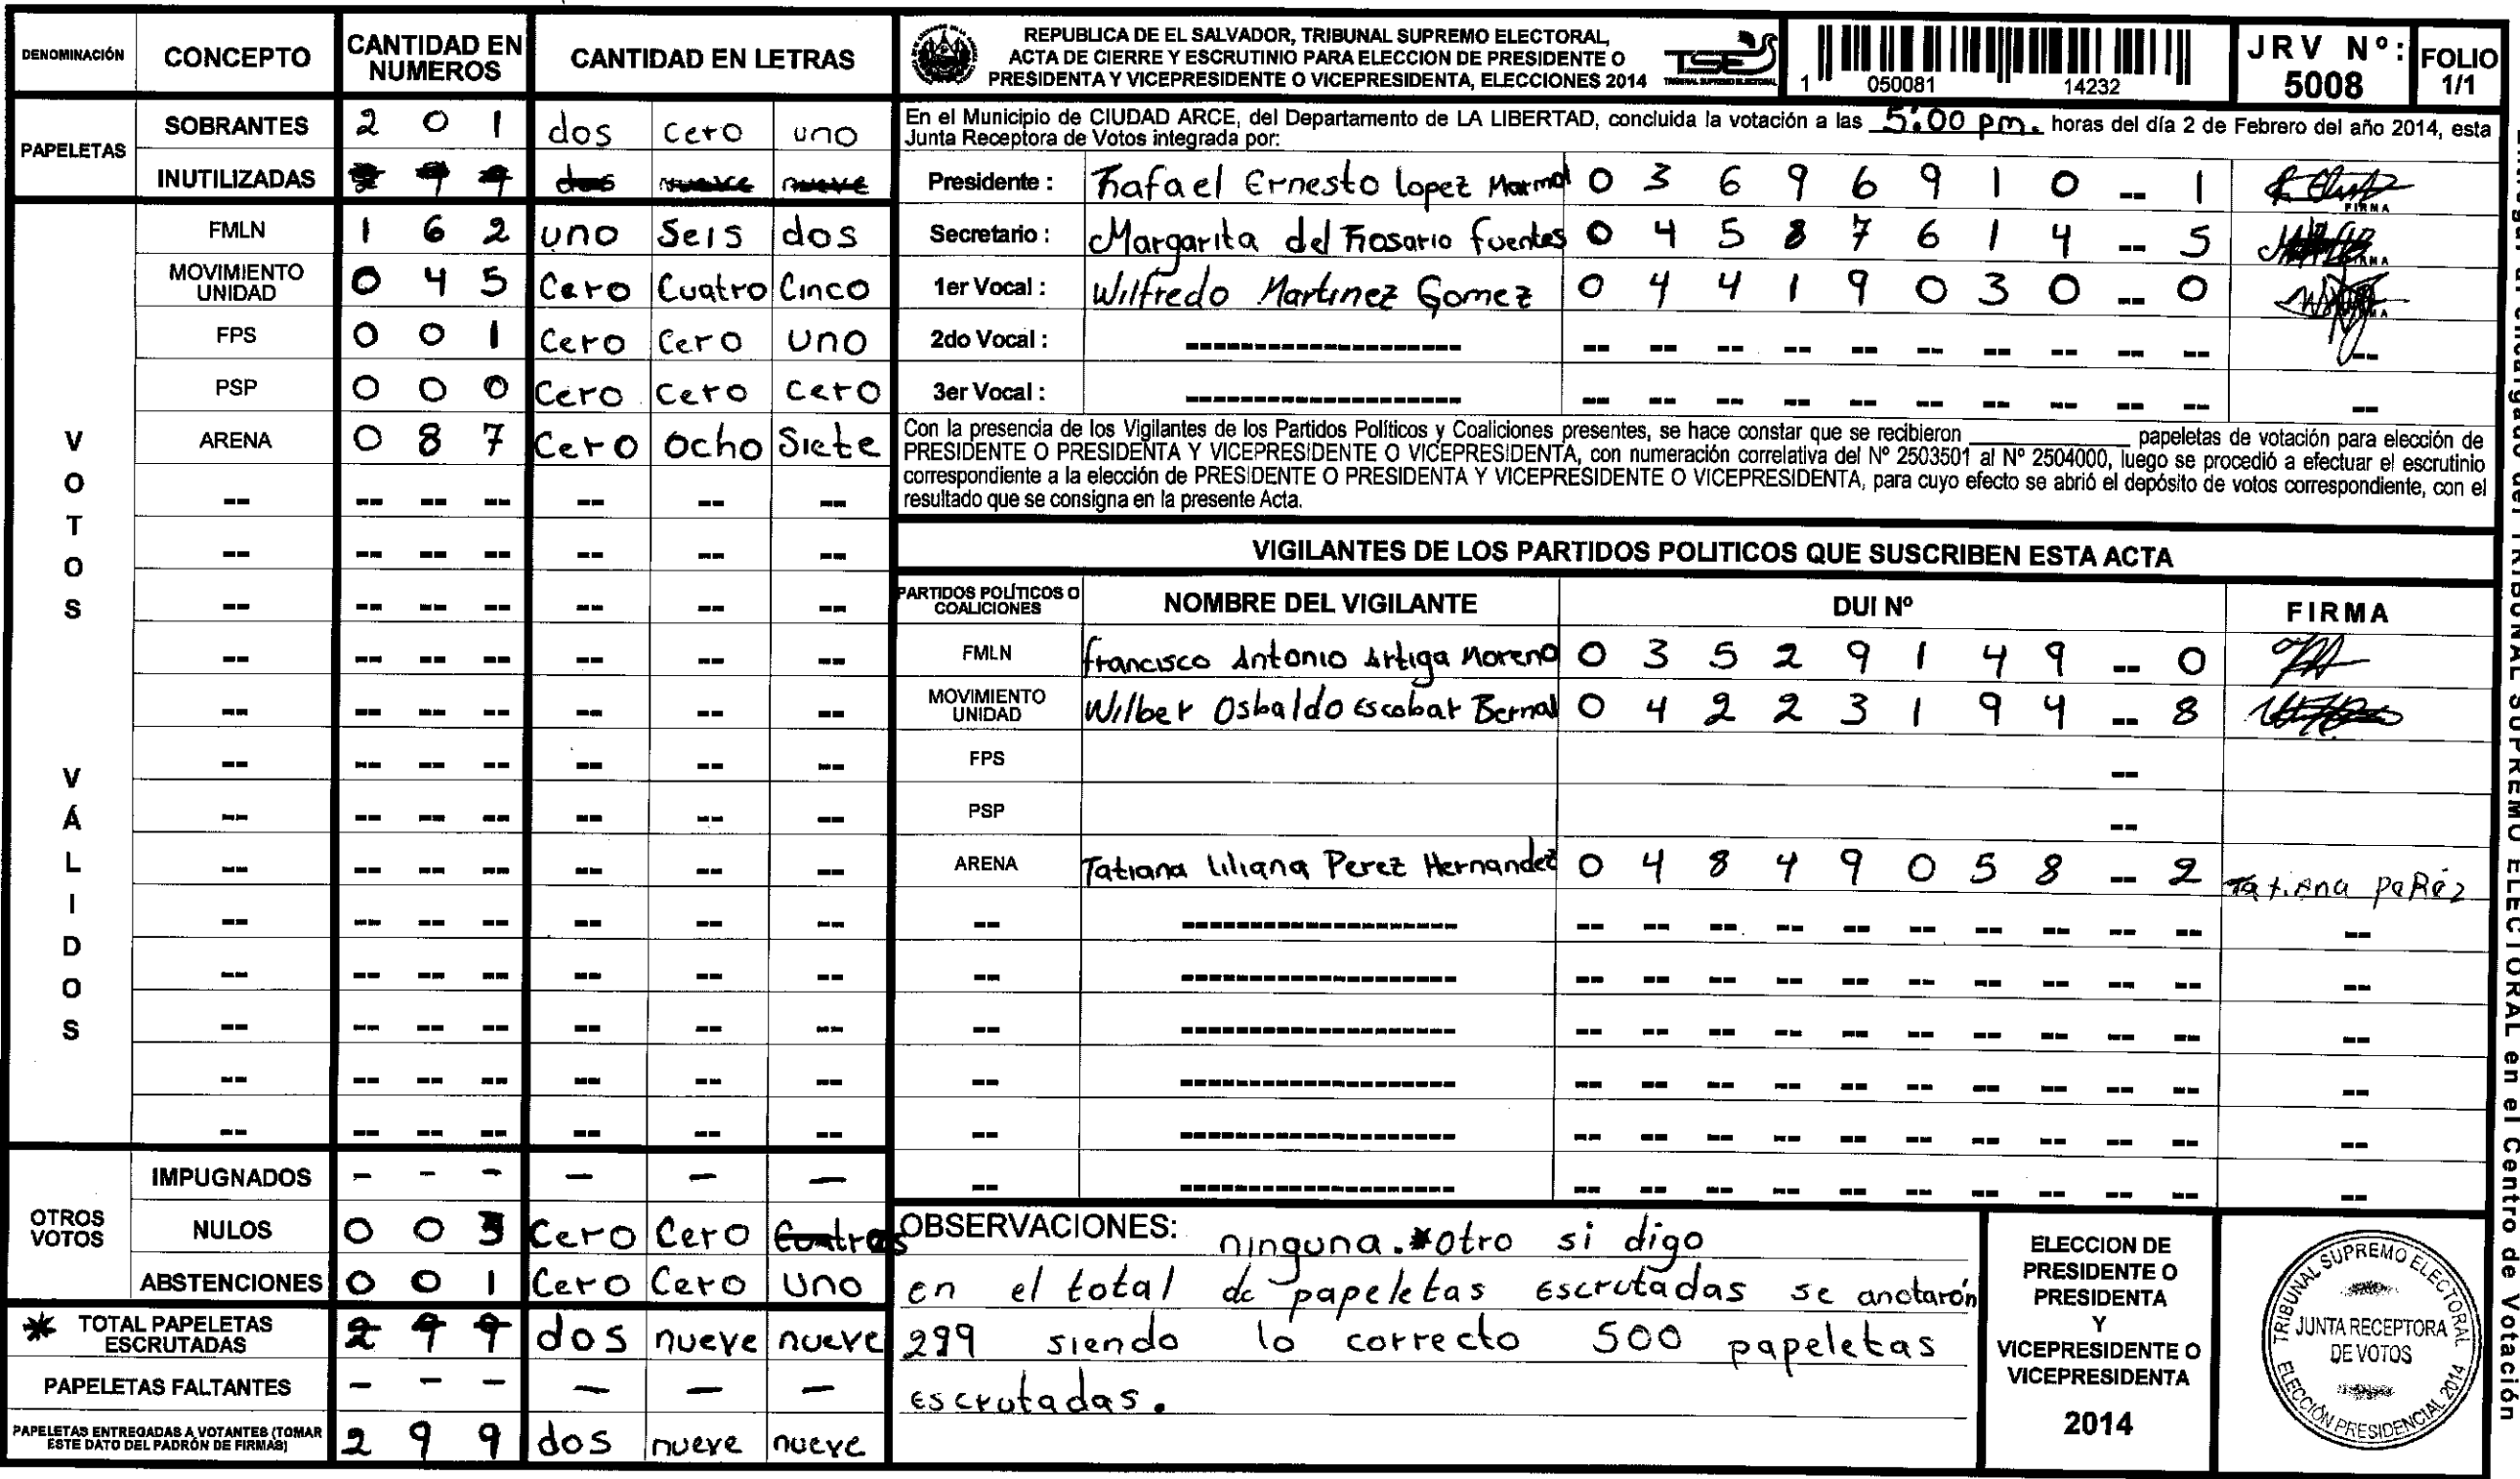 DENOMINACIÓN CONCEPTO CANTIDAD EN NUMEROS CANTIDAD EN LETRAS
PAPELETAS
SOBRANTES 2 0 1 dos cero uno
INUTILIZADAS dos nueve nueve
VOTOS VÁLIDOS
FMLN 1 6 2 uno Seis dos
MOVIMIENTO UNIDAD 0 4 5 Cero Cuatro Cinco
FPS 0 0 1 Cero Cero Uno
PSP 0 0 0 Cero Cero Cero
ARENA 0 8 7 Cero Ocho Siete
-- -- -- -- -- -- --
-- -- -- -- -- -- --
-- -- -- -- -- -- --
-- -- -- -- -- -- --
-- -- -- -- -- -- --
-- -- -- -- -- -- --
-- -- -- -- -- -- --
-- -- -- -- -- -- --
-- -- -- -- -- -- --
-- -- -- -- -- -- --
-- -- -- -- -- -- --
-- -- -- -- -- -- --
-- -- -- -- -- -- --
OTROS VOTOS
IMPUGNADOS - - - - - -
NULOS 0 0 3 Cero Cero
ABSTENCIONES 0 0 1 Cero Cero Uno
* TOTAL PAPELETAS ESCRUTADAS 2 9 9 dos nueve nueve
PAPELETAS FALTANTES - - - - - -
PAPELETAS ENTREGADAS A VOTANTES (TOMAR ESTE DATO DEL PADRÓN DE FIRMAS) 2 9 9 dos nueve nueve
REPUBLICA DE EL SALVADOR, TRIBUNAL SUPREMO ELECTORAL,
ACTA DE CIERRE Y ESCRUTINIO PARA ELECCION DE PRESIDENTE O
PRESIDENTA Y VICEPRESIDENTE O VICEPRESIDENTA, ELECCIONES 2014
TSE
TRIBUNAL SUPREMO ELECTORAL
1 050081 14232
JRV Nº: 5008
FOLIO 1/1
En el Municipio de CIUDAD ARCE, del Departamento de LA LIBERTAD, concluida la votación a las 5:00 pm. horas del día 2 de Febrero del año 2014, esta
Junta Receptora de Votos integrada por:
Presidente : Rafael Ernesto Lopez Marmol 0 3 6 9 6 9 1 0 -- 1 FIRMA
Secretario : Margarita del Rosario fuentes 0 4 5 8 7 6 1 4 -- 5
1er Vocal : Wilfredo Martinez Gomez 0 4 4 1 9 0 3 0 -- 0
2do Vocal : -------------------- -- -- -- -- -- -- -- -- -- -- --
3er Vocal : -------------------- -- -- -- -- -- -- -- -- -- -- --
Con la presencia de los Vigilantes de los Partidos Políticos y Coaliciones presentes, se hace constar que se recibieron ________ papeletas de votación para elección de
PRESIDENTE O PRESIDENTA Y VICEPRESIDENTE O VICEPRESIDENTA, con numeración correlativa del Nº 2503501 al Nº 2504000, luego se procedió a efectuar el escrutinio
correspondiente a la elección de PRESIDENTE O PRESIDENTA Y VICEPRESIDENTE O VICEPRESIDENTA, para cuyo efecto se abrió el depósito de votos correspondiente, con el
resultado que se consigna en la presente Acta.
VIGILANTES DE LOS PARTIDOS POLITICOS QUE SUSCRIBEN ESTA ACTA
PARTIDOS POLÍTICOS O COALICIONES NOMBRE DEL VIGILANTE DUI Nº FIRMA
FMLN francisco Antonio Artiga Moreno 0 3 5 2 9 1 4 9 -- 0
MOVIMIENTO UNIDAD Wilber Osbaldo Escobar Bernal 0 4 2 2 3 1 9 4 -- 8
FPS --
PSP --
ARENA Tatiana Liliana Perez Hernandez 0 4 8 4 9 0 5 8 -- 2 Tatiana peRéz
-- -------------------- -- -- -- -- -- -- -- -- -- -- --
-- -------------------- -- -- -- -- -- -- -- -- -- -- --
-- -------------------- -- -- -- -- -- -- -- -- -- -- --
-- -------------------- -- -- -- -- -- -- -- -- -- -- --
-- -------------------- -- -- -- -- -- -- -- -- -- -- --
-- -------------------- -- -- -- -- -- -- -- -- -- -- --
OBSERVACIONES: ninguna. *otro si digo
en el total de papeletas escrutadas se anotarón
299 siendo lo correcto 500 papeletas
escrutadas.
ELECCION DE
PRESIDENTE O
PRESIDENTA
Y
VICEPRESIDENTE O
VICEPRESIDENTA
2014
TRIBUNAL SUPREMO ELECTORAL
JUNTA RECEPTORA
DE VOTOS
ELECCIÓN PRESIDENCIAL 2014
encargado del TRIBUNAL SUPREMO ELECTORAL en el Centro de Votación